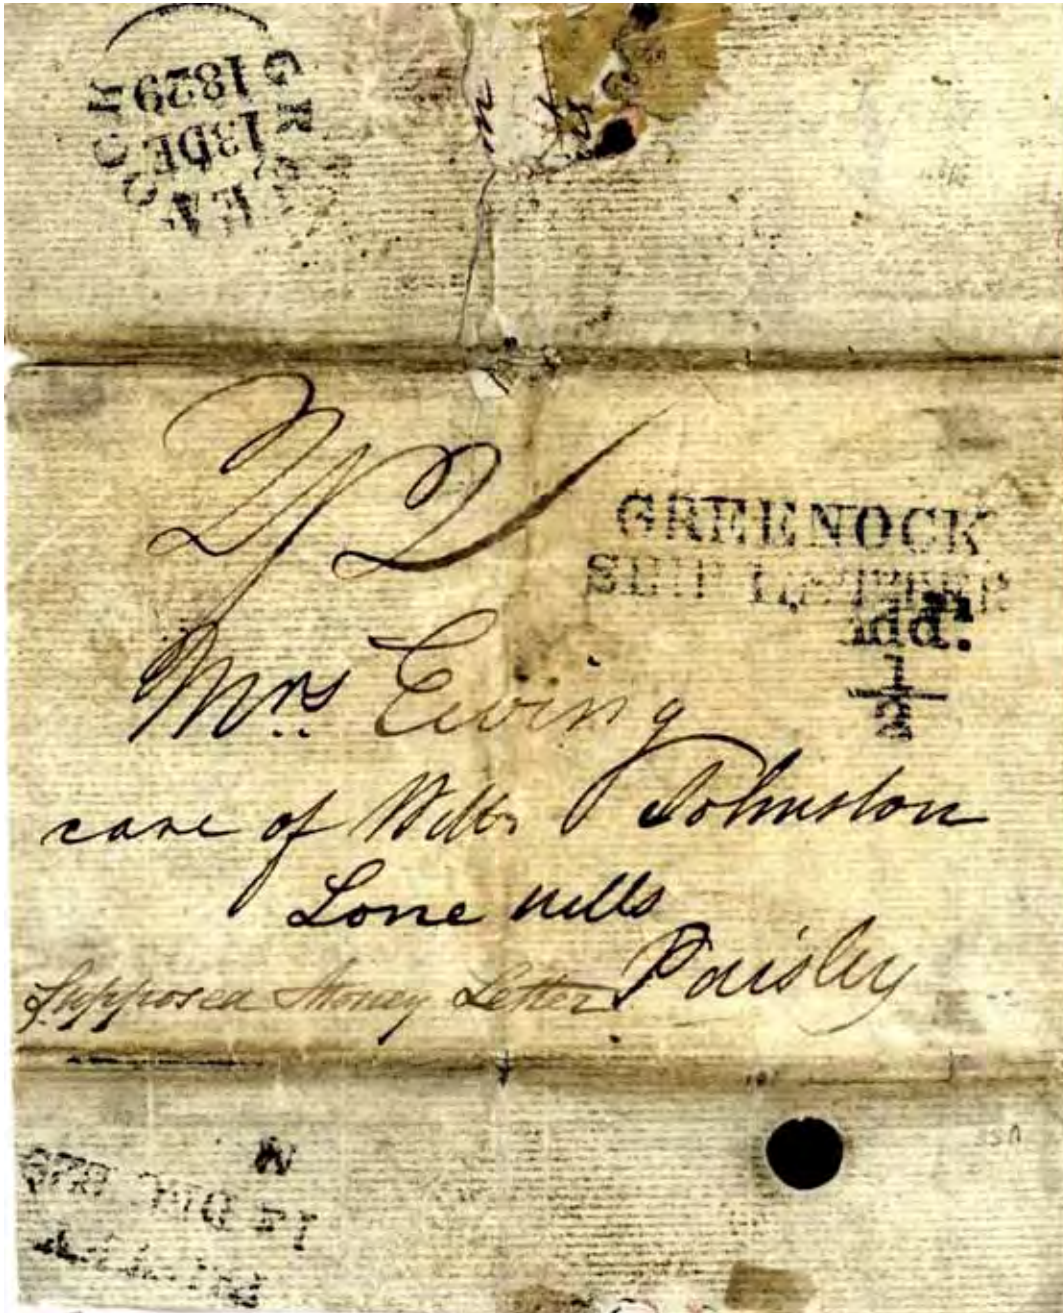 GREENOCK
13DE
1829
GREENOCK
SHIP LETTER
Add:
½
Mrs Ewing
care of Willm Johnston
Lone Mills
Paisley
Supposed Money Letter
M